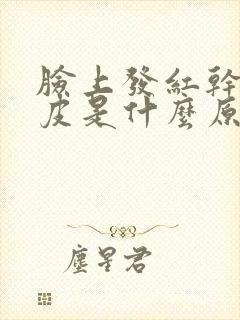 臉上發紅幹
皮是什麼原
塵星君